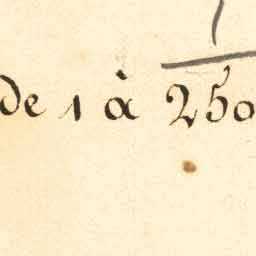 de 1 à 250